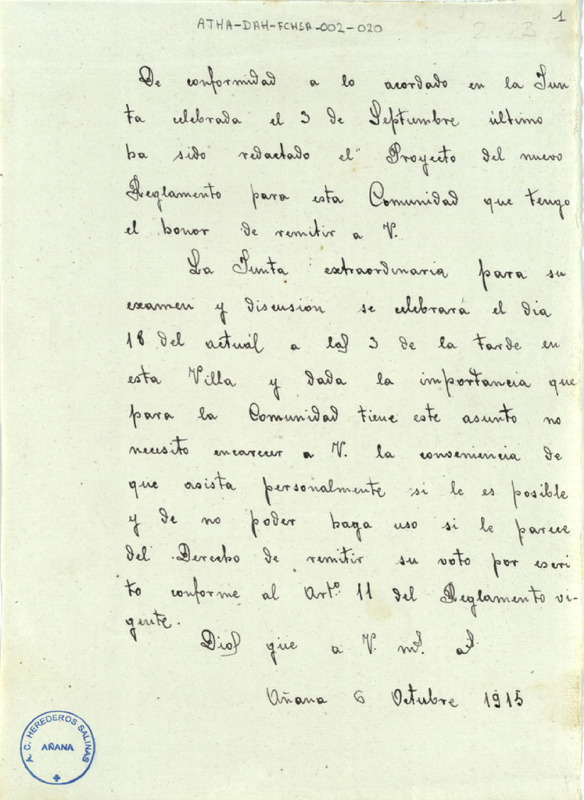 ATHA-DAH-FCHSA-002-020
1
De conformidad a lo acordado en la Jun
ta celebrada el 3 de Septiembre último
ha sido redactado el Proyecto del nuevo
Reglamento para esta Comunidad que tengo
el honor de remitir a V.
La Junta extraordinaria para su
examen y discusion se celebrará el dia
18 del actuál a las 3 de la tarde en
esta Villa y dada la importancia que
para la Comunidad tiene este asunto no
necesito encarecer a V. la conveniencia de
que asista personalmente si le es posible
y de no poder haga uso si le parece
del Derecho de remitir su voto por escri
to conforme al Artº 11 del Reglamento vi-
gente.
Dios gue a V. mˢ. aˢ
Añana 6 Octubre 1915
A. C. HEREDEROS SALINAS
AÑANA